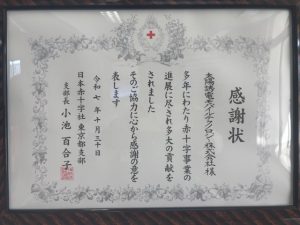 感謝状
太陽誘電モバイルテクノロジー株式会社 様
多年にわたり赤十字事業の
進展に尽され多大の貢献を
されました
そのご協力に心から感謝の意を
表します
令和七年十月三十日
日本赤十字社 東京都支部
支部長 小池百合子